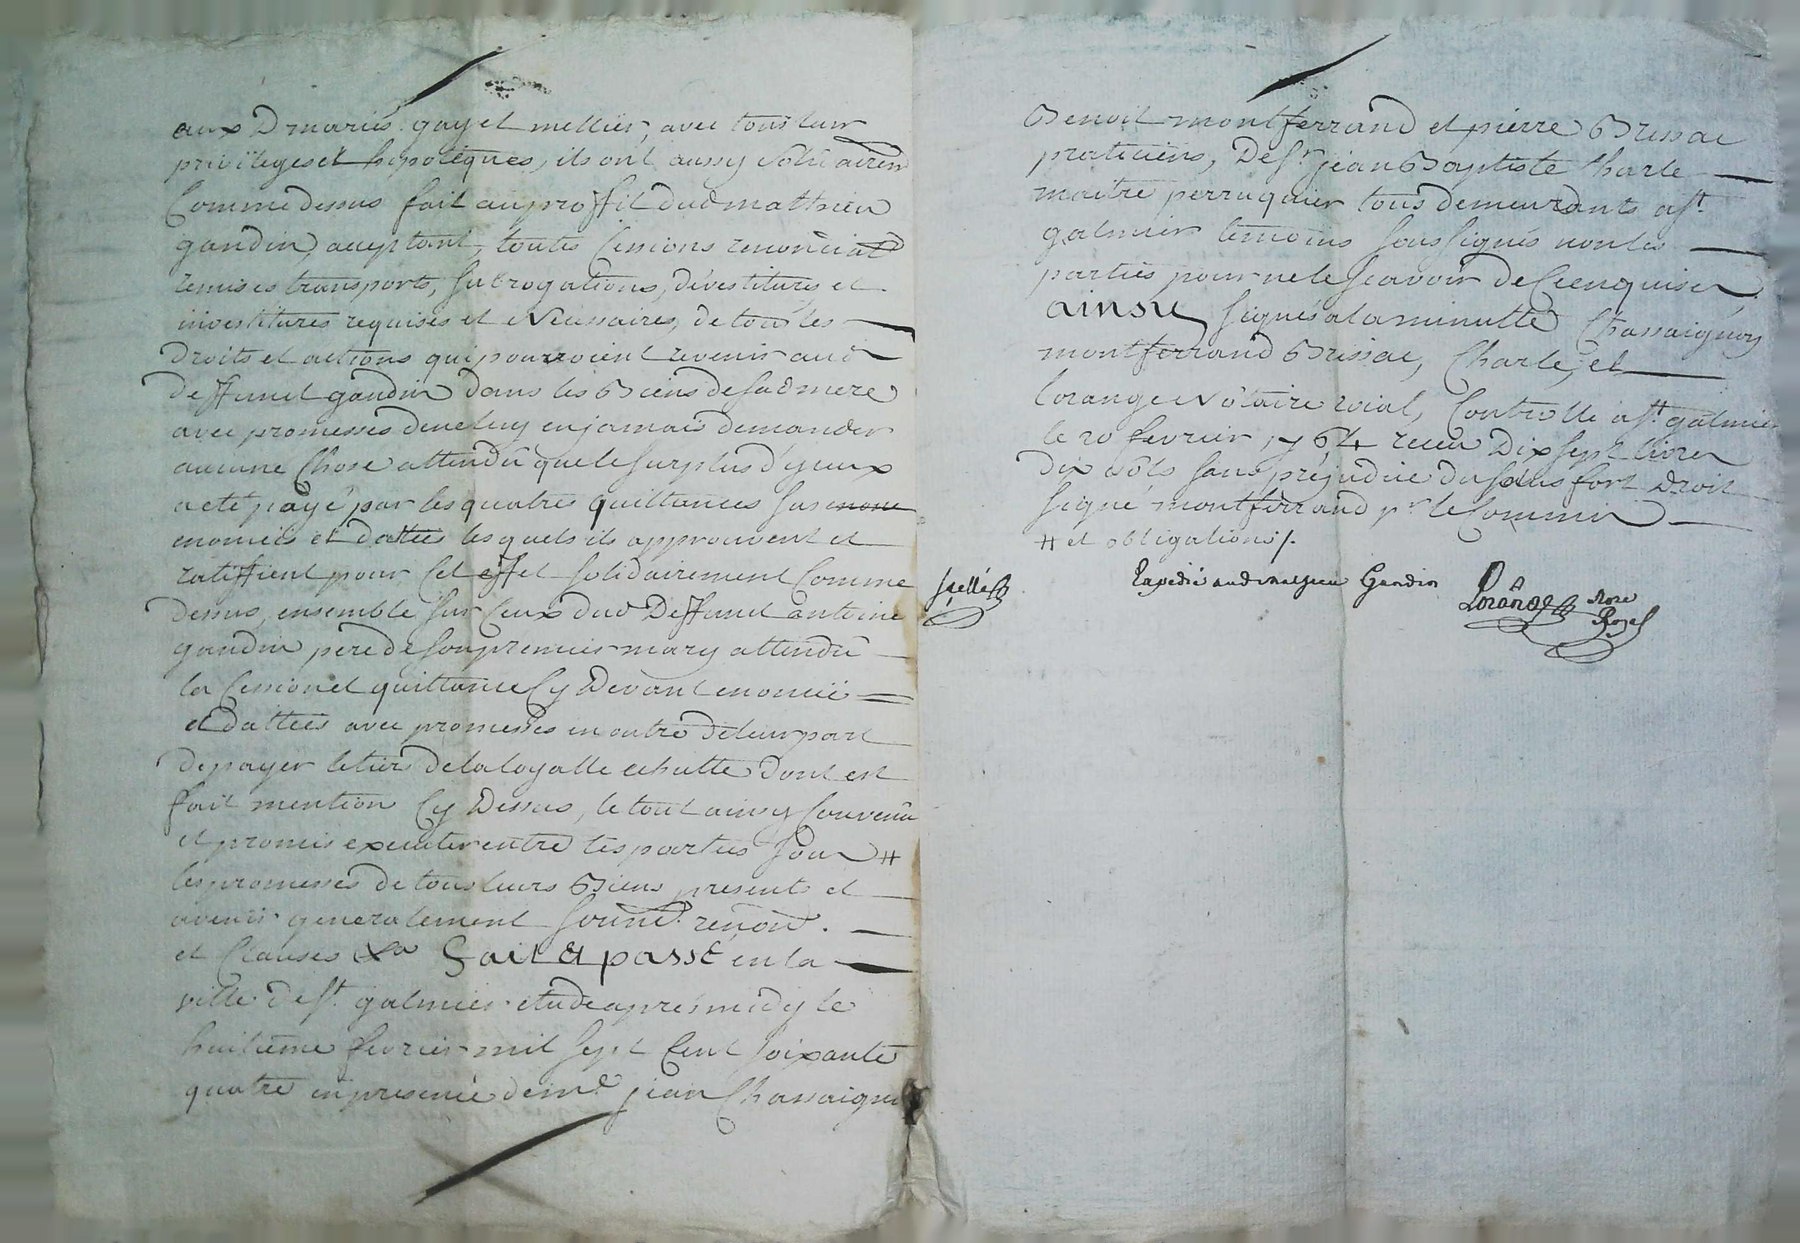 aux D mariés gayet mellier, avec tous leur
privilleges et hipoteques, ils ont aussy solidairem
Comme dessus fait au proffit dud mathieu
gandin, acceptant, toutes Cessions renonciat
remises transports, subrogations, devestitures et
investitures requises et Necessaires, de tous les
droits et actions qui pourroient revenir aud
deffunct gandin dans les Biens de sad mere
avec promesses de ne luy en jamais demander
aucune Chose attendû que le surplus d'yceux
a eté payé par les quatre quittances sus
enoncées et dattées lesquels ils approuvent et
ratiffient pour Cet effet solidairement Comme
dessus, ensemble sur Ceux dud Deffunct antoine
gandin pere de son premier mary attendû
la Cession et quittance Cy Devant enoncée
et dattées avec promesses en outre de leur part
de payer le tiers de la loyalle echutte dont est
fait mention Cy Dessus, le tout ainsy Convenu
et promis executer entre les parties sous #
les promesses de tous leurs Biens presents et
avenir generalement soûm. renon.
et Clauses &a Fait & passé en la
ville de st. galmier etude apres midy le
huitième fevrier mil sept Cent soixante
quatre en presence de me. jean Chassaigno
Benoit montferrand et pierre Brissac
praticiens, De sr. jean Baptiste Charle
maitre perruquier tous demeurants a st.
galmier temoins soussignés non les
parties pour ne le scavoir de Ce enquises
ainsy signés a la minutte Chassaignon
montferrand Brissac, Charle, et
lorange Nôtaire roial, Controllé a st. galmier
le 20 fevrier 1764 receu Dix sept livres
dix sôls sans prejudice du plus fort Droit
signé montferrand pr. le Commis
# et obligations/.
Scellé
Expedié aud mathieu Gandin
Lorange